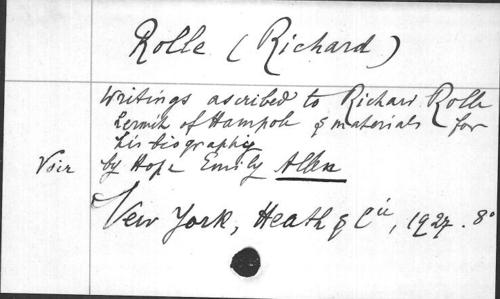 Rolle (Richard)
Writings ascribed to Richard Rolle
hermit of Hampole & materials for
his biography
Voir by Hope Emily Allen
New York, Heath & Cie, 1927. 8°